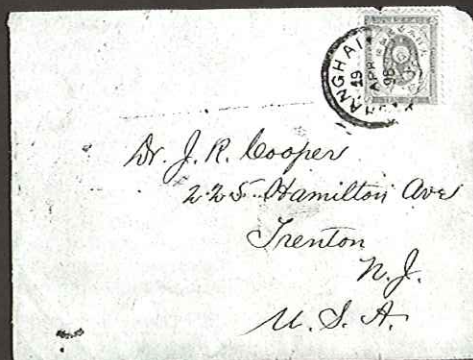 SHANGHAI
19
APR
98
Dr. J. R. Cooper
225 Hamilton Ave
Trenton
N.J.
U.S.A.